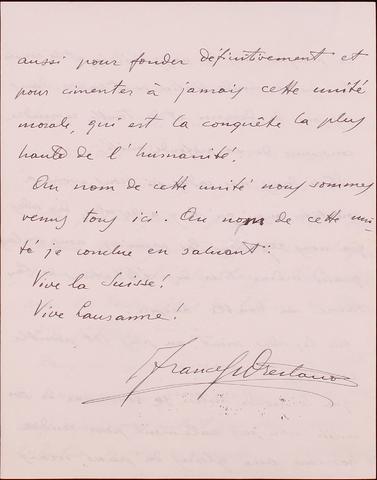 aussi pour fonder définitivement et
pour cimenter à jamais cette unité
morale, qui est la conquête la plus
haute de l'humanité.
Au nom de cette unité nous sommes
venus tous ici. Au nom de cette uni-
té je conclue en saluant:
Vive la Suisse!
Vive Lausanne!
Orestano